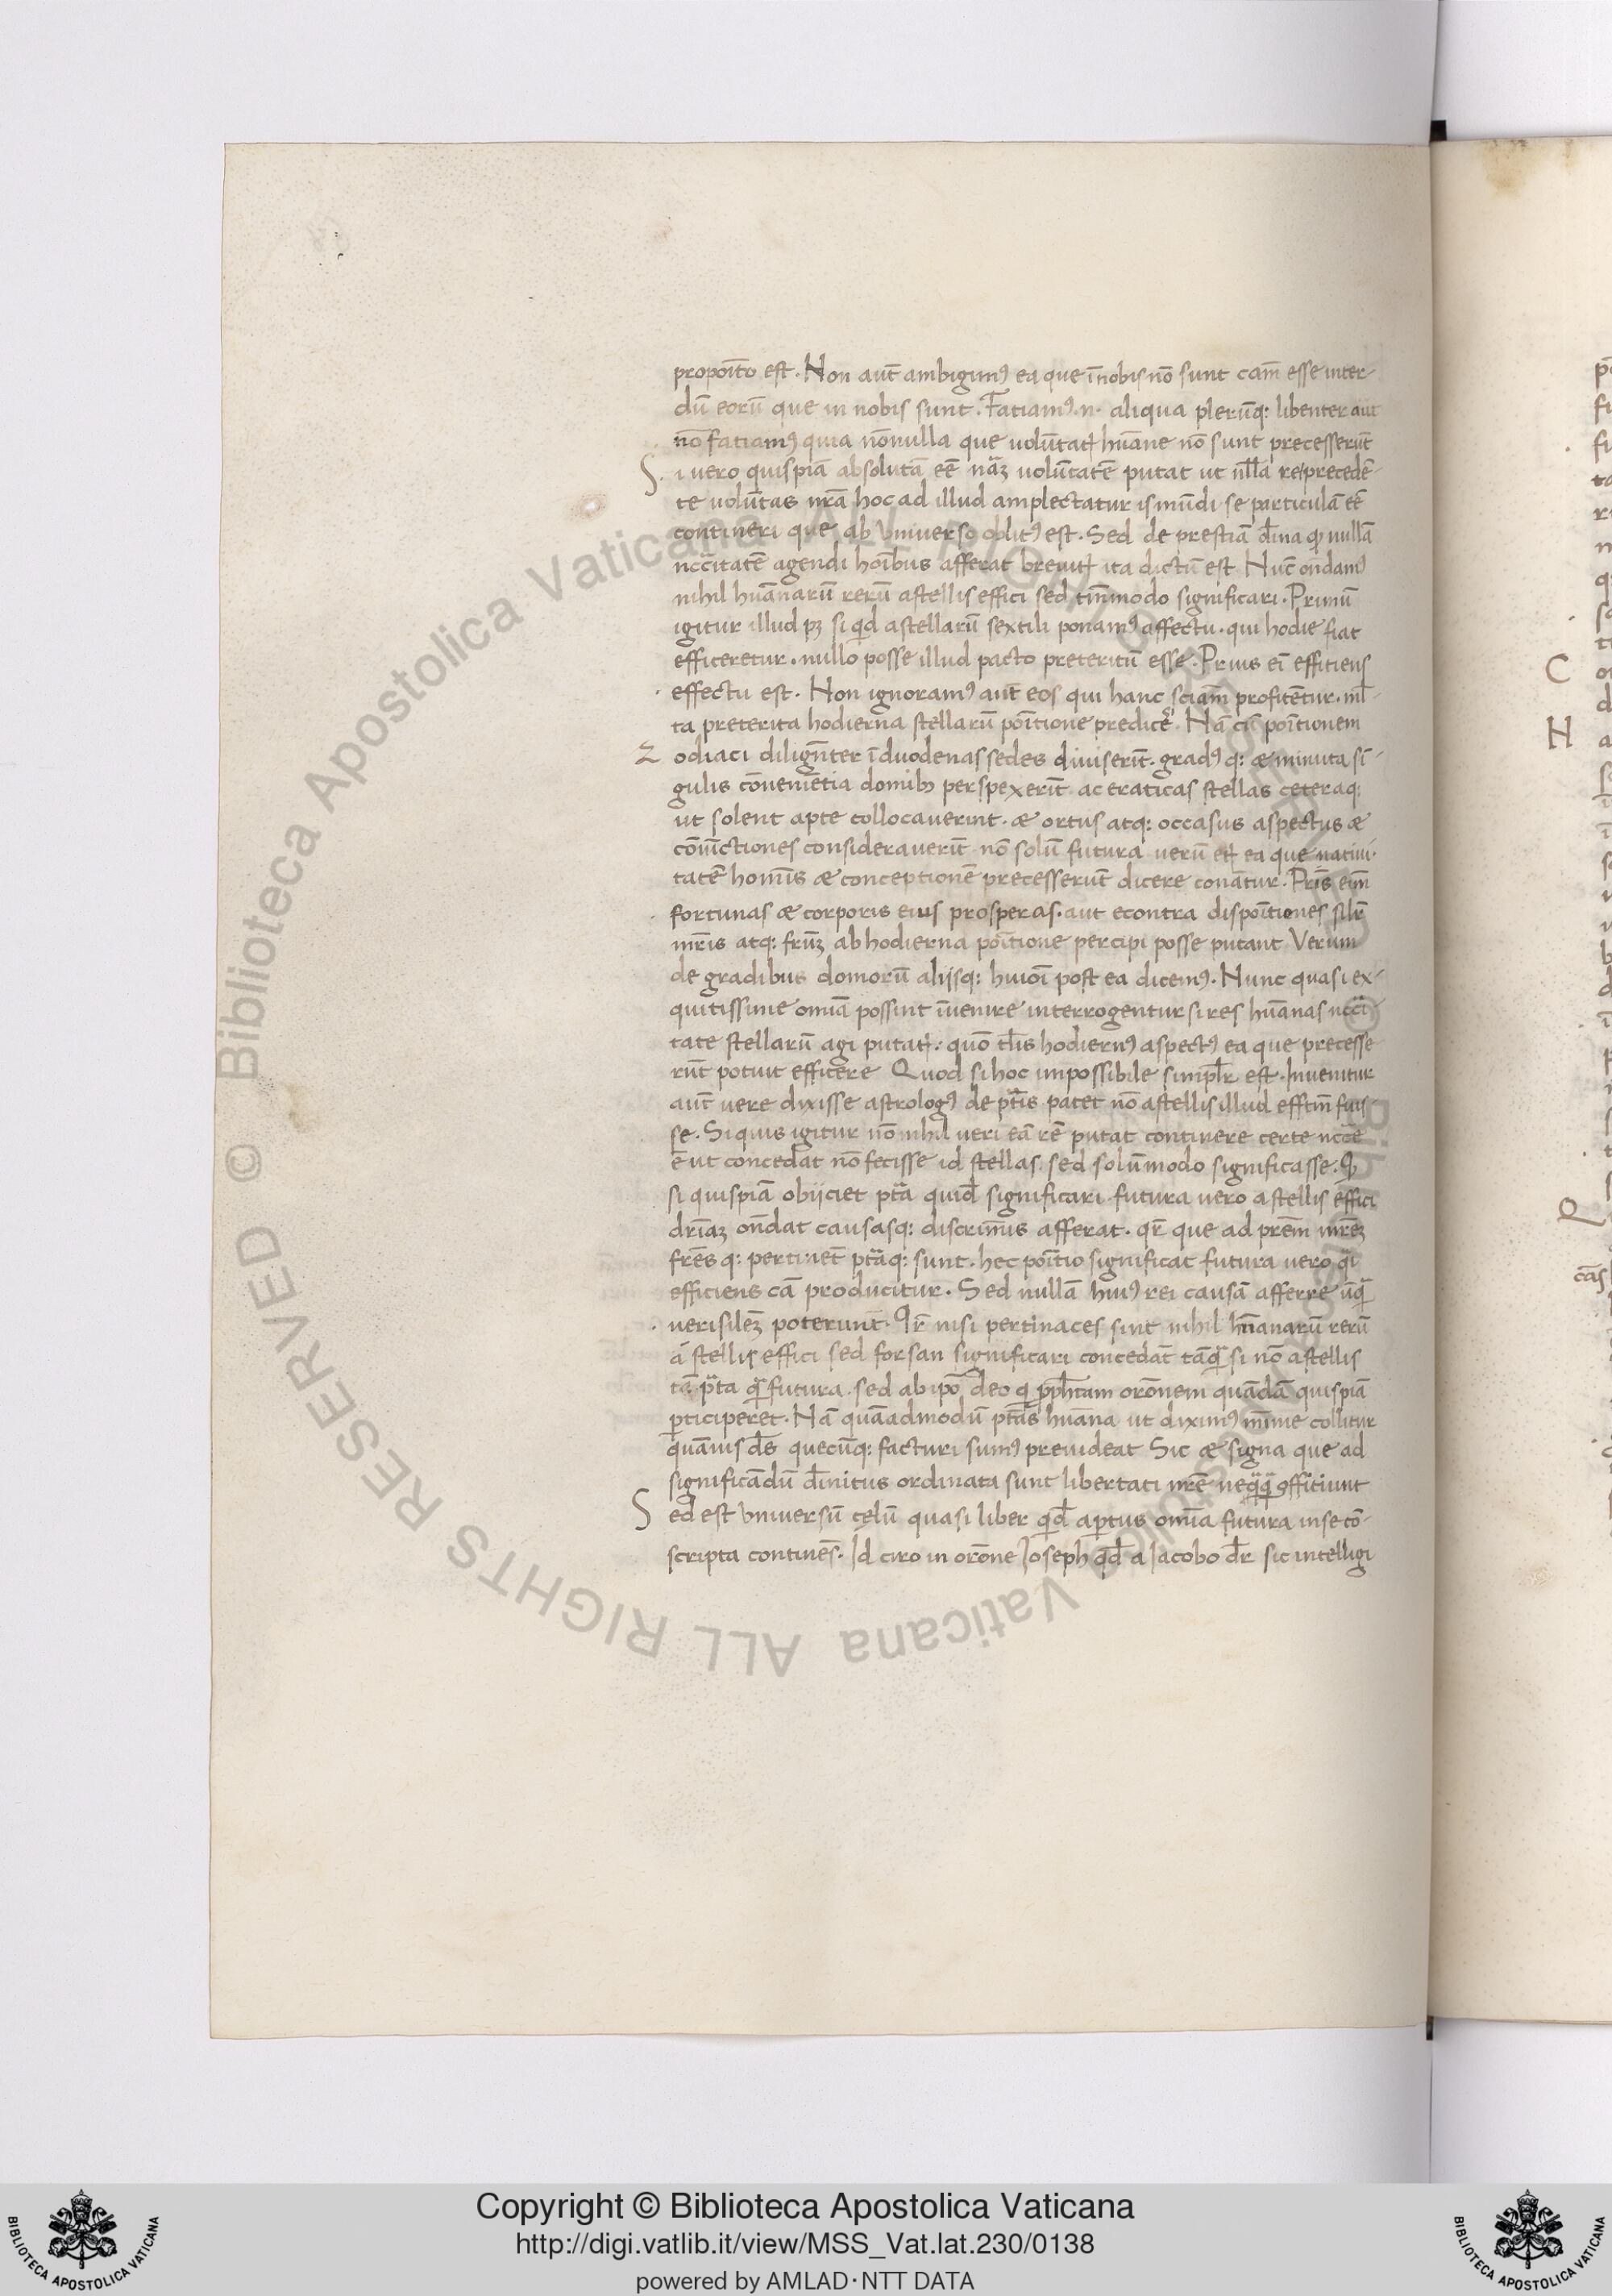 propoı̄to est. Non aut̄ ambigimꝰ ea que ı̄nobis nō sunt cam̄ esse inter-
dū eorū que in nobis sunt. Fatiamꝰ .n. aliqua plerūq: libenter aut
nō fatiamꝰ quia nōnulla que volūtatꝭ hūane nō sunt precesserūt
Si vero quispiā absolutā eē nr̄aꝫ volūtatē putat ut nll̄a re precedē-
te volūtas nr̄a hoc ad illud amplectatur is mūdi se particulā eē
contineri que ab universo oblitꝰ est. Sed de prestiā dīna ꝙ nullā
nc̄citatē agendi hoı̄bus afferat brevitꝭ ita dictū est Nūc ondamꝰ
nihil hūanarū rerū astellis effici sed tm̄modo significari. Primū
igitur illud pꝫ si qd astellarū sextili ponamꝰ affectu. qui hodie fiat
efficeretur. nullo posse illud pacto preteritū esse. Prius eı̄ efficiens
effectu est. Non ignoramꝰ aut̄ eos qui hanc sciam̄ profitētur. ml̄-
ta preterita hodierna stellarū poı̄tione predicē. Nā cū poı̄tionem
Zodiaci diligēnter ı̄ duodenas sedes diviserīt. gradꝰ q: & minuta sı̄-
gulis cōvenıētia domibꝫ perspexerīt ac eraticas stellas ceteraq:
ut solent apte collocaverint. & ortus atq: occasus aspectus &
cōiūctiones consideraverīt nō solū futura verū etꝭ ea que nativi-
tatē homīs & conceptionē precesserūt dicere conātur. Prı̄s eım̄
fortunas & corporis eius prosperas. aut econtra dispoı̄tiones silr̄
mr̄is atq: fr̄uꝫ ab hodierna poı̄tione percipi posse putant Verum
de gradibus domorū alijsq: huioı̄ post ea dicemꝰ. Nunc quasi ex-
quitissime omīa possint ı̄venire interrogentur si res hūanas nc̄ci-
tate stellarū agi putatꝭ: quō tl̄is hodiernꝰ aspectꝰ ea que precesse
rūt potuit efficere Quod si hoc impossibile simpl̄r est. Invenitur
aut̄ vere dixisse astrologꝰ de pt̄is patet nō astellis illud effctm̄ fuis-
se. Si quis igitur nō nihil veri eā rē putat continere certe nc̄ce
ē ut concedat nō fecisse id stellas. sed solūmodo significasse. ꝙ
si quispiā obijciet pt̄a quid̄ significari futura vero a stellis effici
dr̄iaꝫ on̄dat causasq: discrimı̄s afferat. qr̄ que ad prem̄ mr̄eꝫ
fr̄es q: pertinet̄ pt̄aq: sunt. hec poı̄tio significat futura vero qı̄
efficiens cā producitur. Sed nullā huiꝰ rei causā afferre ūq̄
verisilēꝫ poterunt. Qr̄ nisi pertinaces sint nihil hūanarū rerū
a stellis effici sed forsan significari concedāt tāq̄ si nō astellis
tā pt̄a q̄ futura. sed ab ip̄o deo ꝑ pph̄tam orōnem quādā quispiā
ꝑticiperet. Nā quāadmodū ptās hūana ut diximꝰ mīme collitur
quāvis d̄s quecūq: facturi sumꝰ prevideat Sic & signa que ad
significādū dīnitus ordinata sunt libertati nr̄e neqq̄ officiunt
Sed est universū celū quasi liber qd̄ aꝑtus omīa futura in se cō-
scripta continēs. Id circo in orōne Joseph qd̄ a Jacobo dr̄ sic intelligi
C
N
cās
© Biblioteca Apostolica Vaticana ALL RIGHTS RESERVED
Copyright © Biblioteca Apostolica Vaticana
http://digi.vatlib.it/view/MSS_Vat.lat.230/0138
powered by AMLAD·NTT DATA
BIBLIOTECA APOSTOLICA VATICANA
BIBLIOTECA APOSTOLICA VATICANA